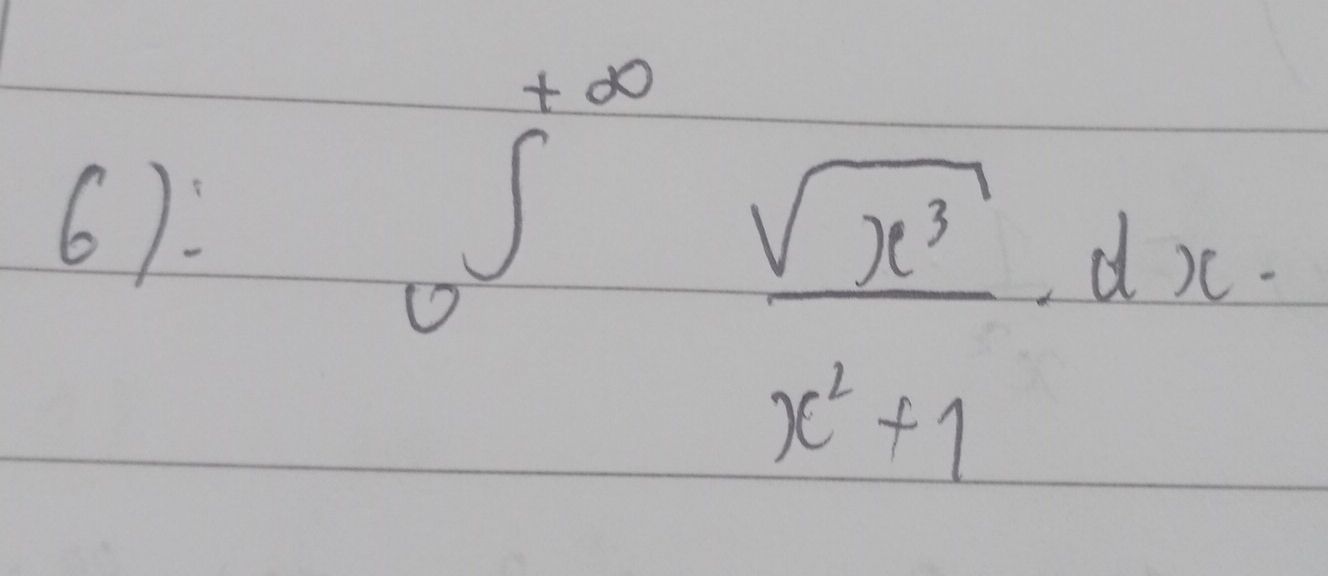 6): ∫₀^{+∞} √(x³) / (x² + 1) . dx .